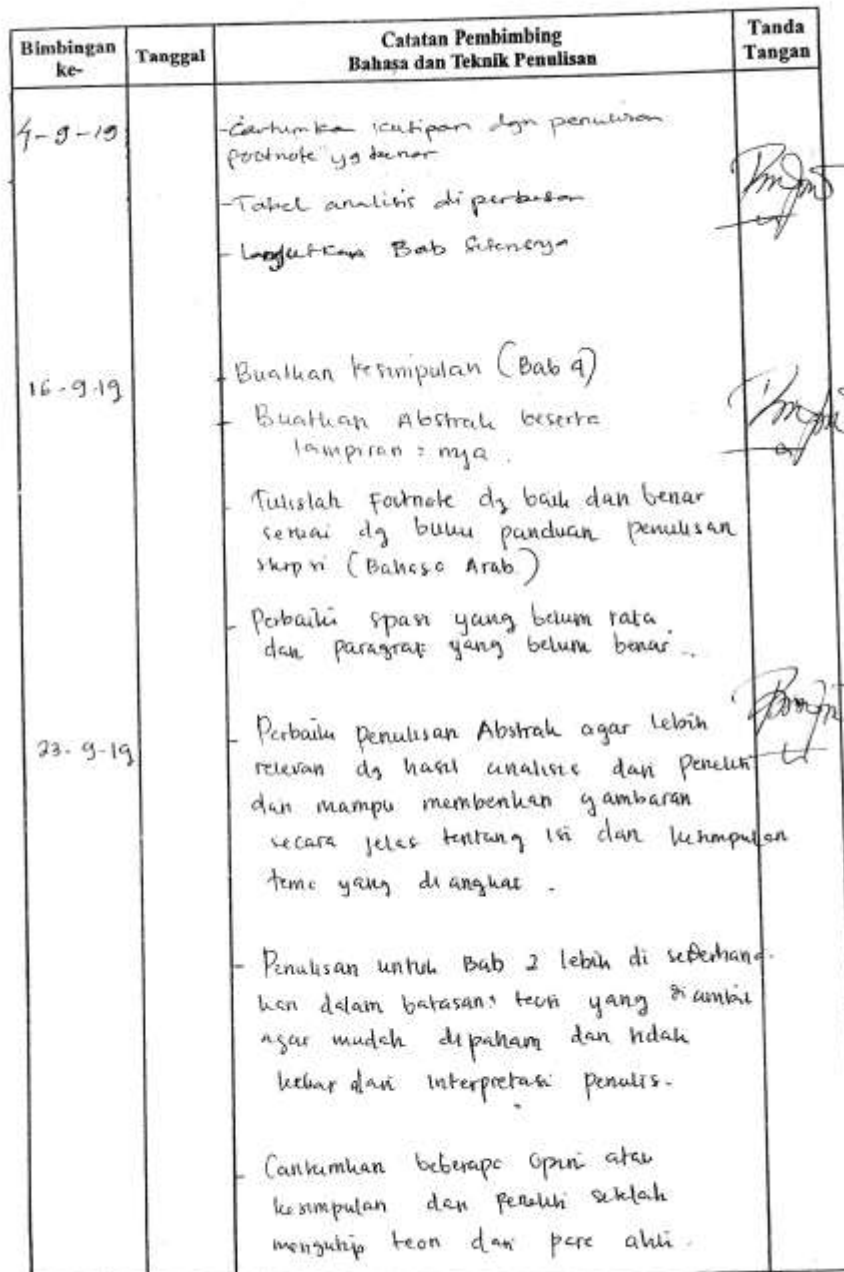 Bimbingan ke-
Tanggal
Catatan Pembimbing
Bahasa dan Teknik Penulisan
Tanda Tangan
4-9-19
- Cantumkan kutipan dgn penulisan
footnote yg benar
- Tabel analisis diperbesar
- Lanjutkan Bab
16-9-19
- Buatkan kesimpulan (Bab 4)
- Buatkan Abstrak beserta
lampiran = nya.
- Tulislah Footnote dg baik dan benar
sesuai dg buku panduan penulisan
skripsi (Bahasa Arab)
- Perbaiki spasi yang belum rata
dan paragraf yang belum benar.
23-9-19
- Perbaiki penulisan Abstrak agar lebih
relevan dg hasil analisis dari Peneliti
dan mampu memberikan gambaran
secara jelas tentang isi dan kesimpulan
tema yang di angkat.
- Penulisan untuk Bab 2 lebih di sederhana-
kan dalam batasan² teori yang diambil
agar mudah dipaham dan tidak
keluar dari interpretasi penulis.
- Cantumkan beberapa opini atau
kesimpulan dari Peneliti setelah
mengutip teori dari para ahli.